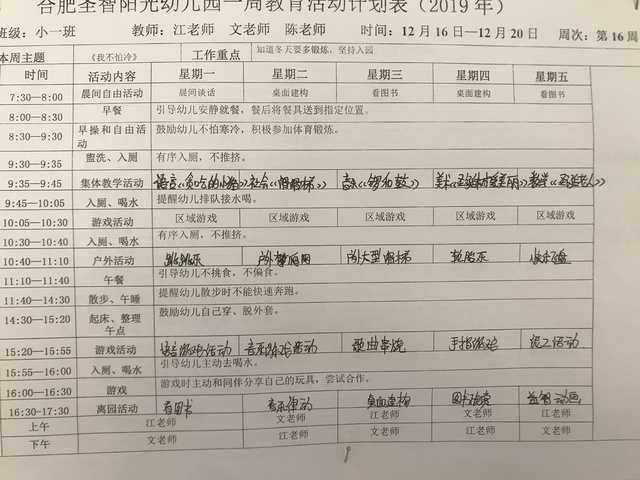 合肥圣智阳光幼儿园一周教育活动计划表（2019年）
班级：小一班 教师：江老师 文老师 陈老师 时间：12月16日—12月20日 周次：第16周
本周主题 《我不怕冷》 工作重点 知道冬天要多锻炼，坚持入园
时间 活动内容 星期一 星期二 星期三 星期四 星期五
7:30—8:00 晨间自由活动 晨间谈话 桌面建构 看图书 桌面建构 看图书
8:00—8:30 早餐 引导幼儿安静就餐，餐后将餐具送到指定位置。
8:30—9:30 早操和自由活动 鼓励幼儿不怕寒冷，积极参加体育锻炼。
9:30—9:35 盥洗、入厕 有序入厕，不推挤。
9:35—9:45 集体教学活动 语言《贪吃的小猪》 社会《滑滑梯》 音乐《锣和鼓》 美术 数学《圣诞老人》
9:45—10:05 入厕、喝水 提醒幼儿排队接水喝。
10:05—10:30 游戏活动 区域游戏 区域游戏 区域游戏 区域游戏 区域游戏
10:30—10:40 入厕、喝水 有序入厕，不推挤。
10:40—11:10 户外活动 户外大型滑梯
11:10—11:40 午餐 引导幼儿不挑食，不偏食。
11:40—14:30 散步、午睡 提醒幼儿散步时不能快速奔跑。
14:30—15:20 起床、整理午点 鼓励幼儿自己穿、脱外套。
15:20—15:55 游戏活动 语言游戏活动 音乐游戏活动 歌曲串烧 手指游戏
15:55—16:00 入厕、喝水 引导幼儿主动去喝水。
16:00—16:30 游戏 游戏时主动和同伴分享自己的玩具，尝试合作。
16:30-17:30 离园活动 看图书 音乐律动 桌面建构 益智动画
上午 江老师 文老师 江老师 文老师 江老师
下午 文老师 江老师 文老师 江老师 文老师